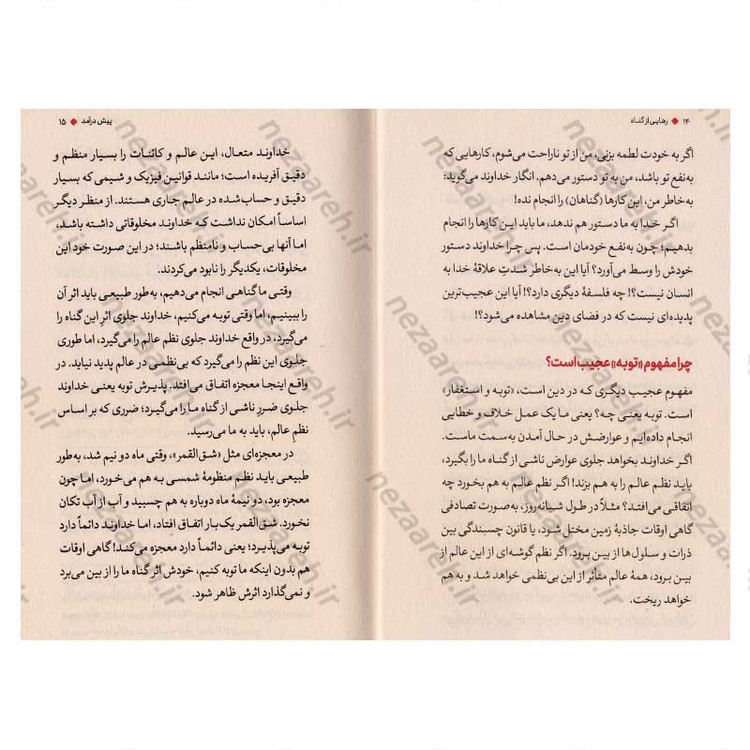 ۱۴ ● رهایی از گناه
اگر به خودت لطمه بزنی، من از تو ناراحت می‌شوم، کارهایی که
به‌نفع تو باشد، من به تو دستور می‌دهم. انگار خداوند می‌گوید:
به‌خاطر من، این کارها (گناهان) را انجام نده!
اگر خدا به ما دستور هم ندهد، ما باید این کارها را انجام
بدهیم؛ چون به‌نفع خودمان است. پس چرا خداوند دستور
خودش را وسط می‌آورد؟ آیا این به‌خاطر شدتِ علاقهٔ خدا به
انسان نیست؟! چه فلسفهٔ دیگری دارد؟! آیا این عجیب‌ترین
پدیده‌ای نیست که در فضای دین مشاهده می‌شود؟!
چرا مفهوم «توبه» عجیب است؟
مفهوم عجیب دیگری که در دین است، «توبه و استغفار»
است. توبه یعنی چه؟ یعنی ما یک عمل خلاف و خطایی
انجام داده‌ایم و عوارضش در حال آمدن به‌سمت ماست.
اگر خداوند بخواهد جلوی عوارض ناشی از گناه ما را بگیرد،
باید نظم عالم را به هم بزند! اگر نظم عالم به هم بخورد چه
اتفاقی می‌افتد؟ مثلاً در طول شبانه‌روز، به‌صورت تصادفی
گاهی اوقات جاذبهٔ زمین مختل شود، یا قانون چسبندگی بین
ذرات و سلول‌ها از بین برود. اگر نظم گوشه‌ای از این عالم از
بین برود، همهٔ عالم متأثر از این بی‌نظمی خواهد شد و به هم
خواهد ریخت.
پیش درآمد ● ۱۵
خداوند متعال، این عالم و کائنات را بسیار منظم و
دقیق آفریده است؛ مانند قوانین فیزیک و شیمی که بسیار
دقیق و حساب‌شده در عالم جاری هستند. از منظر دیگر
اساساً امکان نداشت که خداوند مخلوقاتی داشته باشد،
اما آنها بی‌حساب و نامنظم باشند؛ در این صورت خود این
مخلوقات، یکدیگر را نابود می‌کردند.
وقتی ما گناهی انجام می‌دهیم، به‌طور طبیعی باید اثر آن
را ببینیم، اما وقتی توبه می‌کنیم، خداوند جلوی اثرِ این گناه را
می‌گیرد، در واقع خداوند جلوی نظم عالم را می‌گیرد، اما طوری
جلوی این نظم را می‌گیرد که بی‌نظمی در عالم پدید نیاید. در
واقع اینجا معجزه اتفاق می‌افتد. پذیرش توبه یعنی خداوند
جلوی ضررِ ناشی از گناه ما را می‌گیرد؛ ضرری که بر اساس
نظم عالم، باید به ما می‌رسید.
در معجزه‌ای مثل «شق‌القمر»، وقتی ماه دو نیم شد، به‌طور
طبیعی باید نظم منظومهٔ شمسی به هم می‌خورد، اما چون
معجزه بود، دو نیمهٔ ماه دوباره به هم چسبید و آب از آب تکان
نخورد. شق‌القمر یک‌بار اتفاق افتاد، اما خداوند دائماً دارد
توبه می‌پذیرد؛ یعنی دائماً دارد معجزه می‌کند! گاهی اوقات
هم بدون اینکه ما توبه کنیم، خودش اثر گناه ما را از بین می‌برد
و نمی‌گذارد اثرش ظاهر شود.
nezaareh.ir
nezaareh.ir
nezaareh.ir
nezaareh.ir
nezaareh.ir
nezaareh.ir